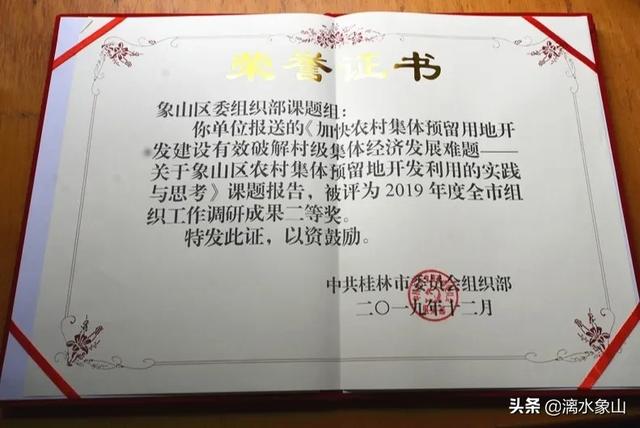 荣誉证书
象山区委组织部课题组：
你单位报送的《加快农村集体预留用地开
发建设有效破解村级集体经济发展难题——
关于象山区农村集体预留地开发利用的实践
与思考》课题报告，被评为2019年度全市组
织工作调研成果二等奖。
特发此证，以资鼓励。
中共桂林市委员会组织部
二〇一九年十二月
头条@漓水象山